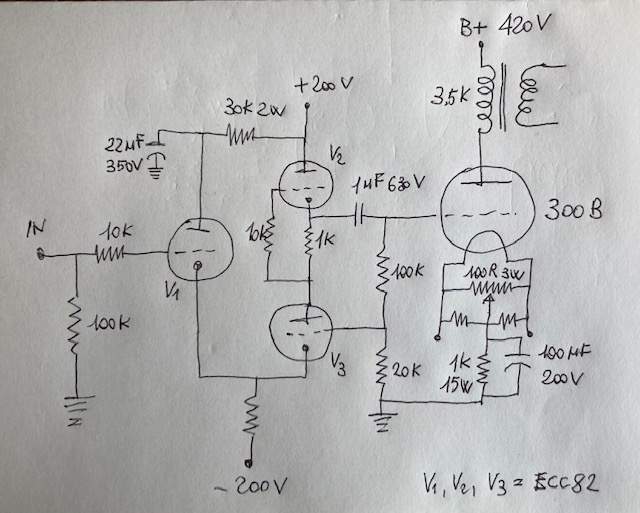 B+ 420V
+200V
3,5K
30K 2W
22µF
350V
V2
1µF 630V
300B
IN
10K
10K
1K
V1
100K
100R 3W
100K
V3
20K
1K
15W
100µF
200V
-200V
V1, V2, V3 = ECC82